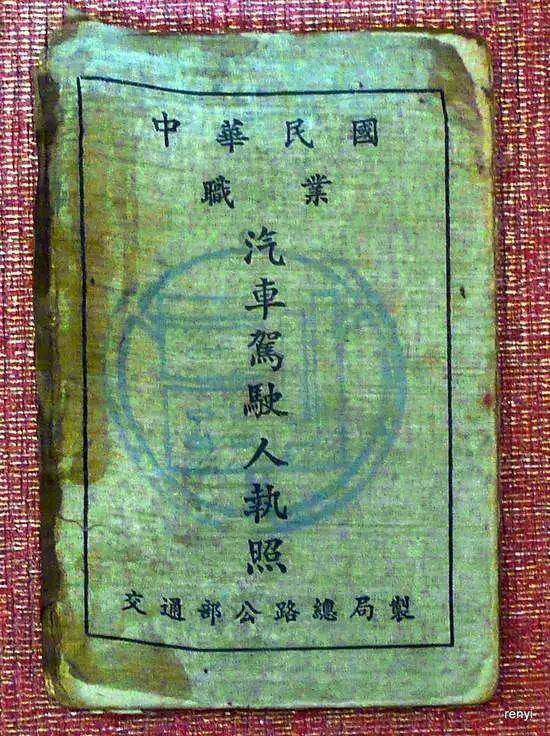 中華民國
職業
汽車駕駛人執照
交通部公路總局製
renyi